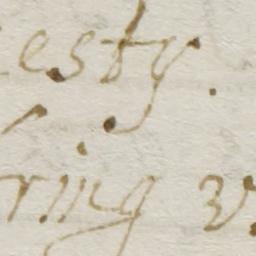 esty.
ring v